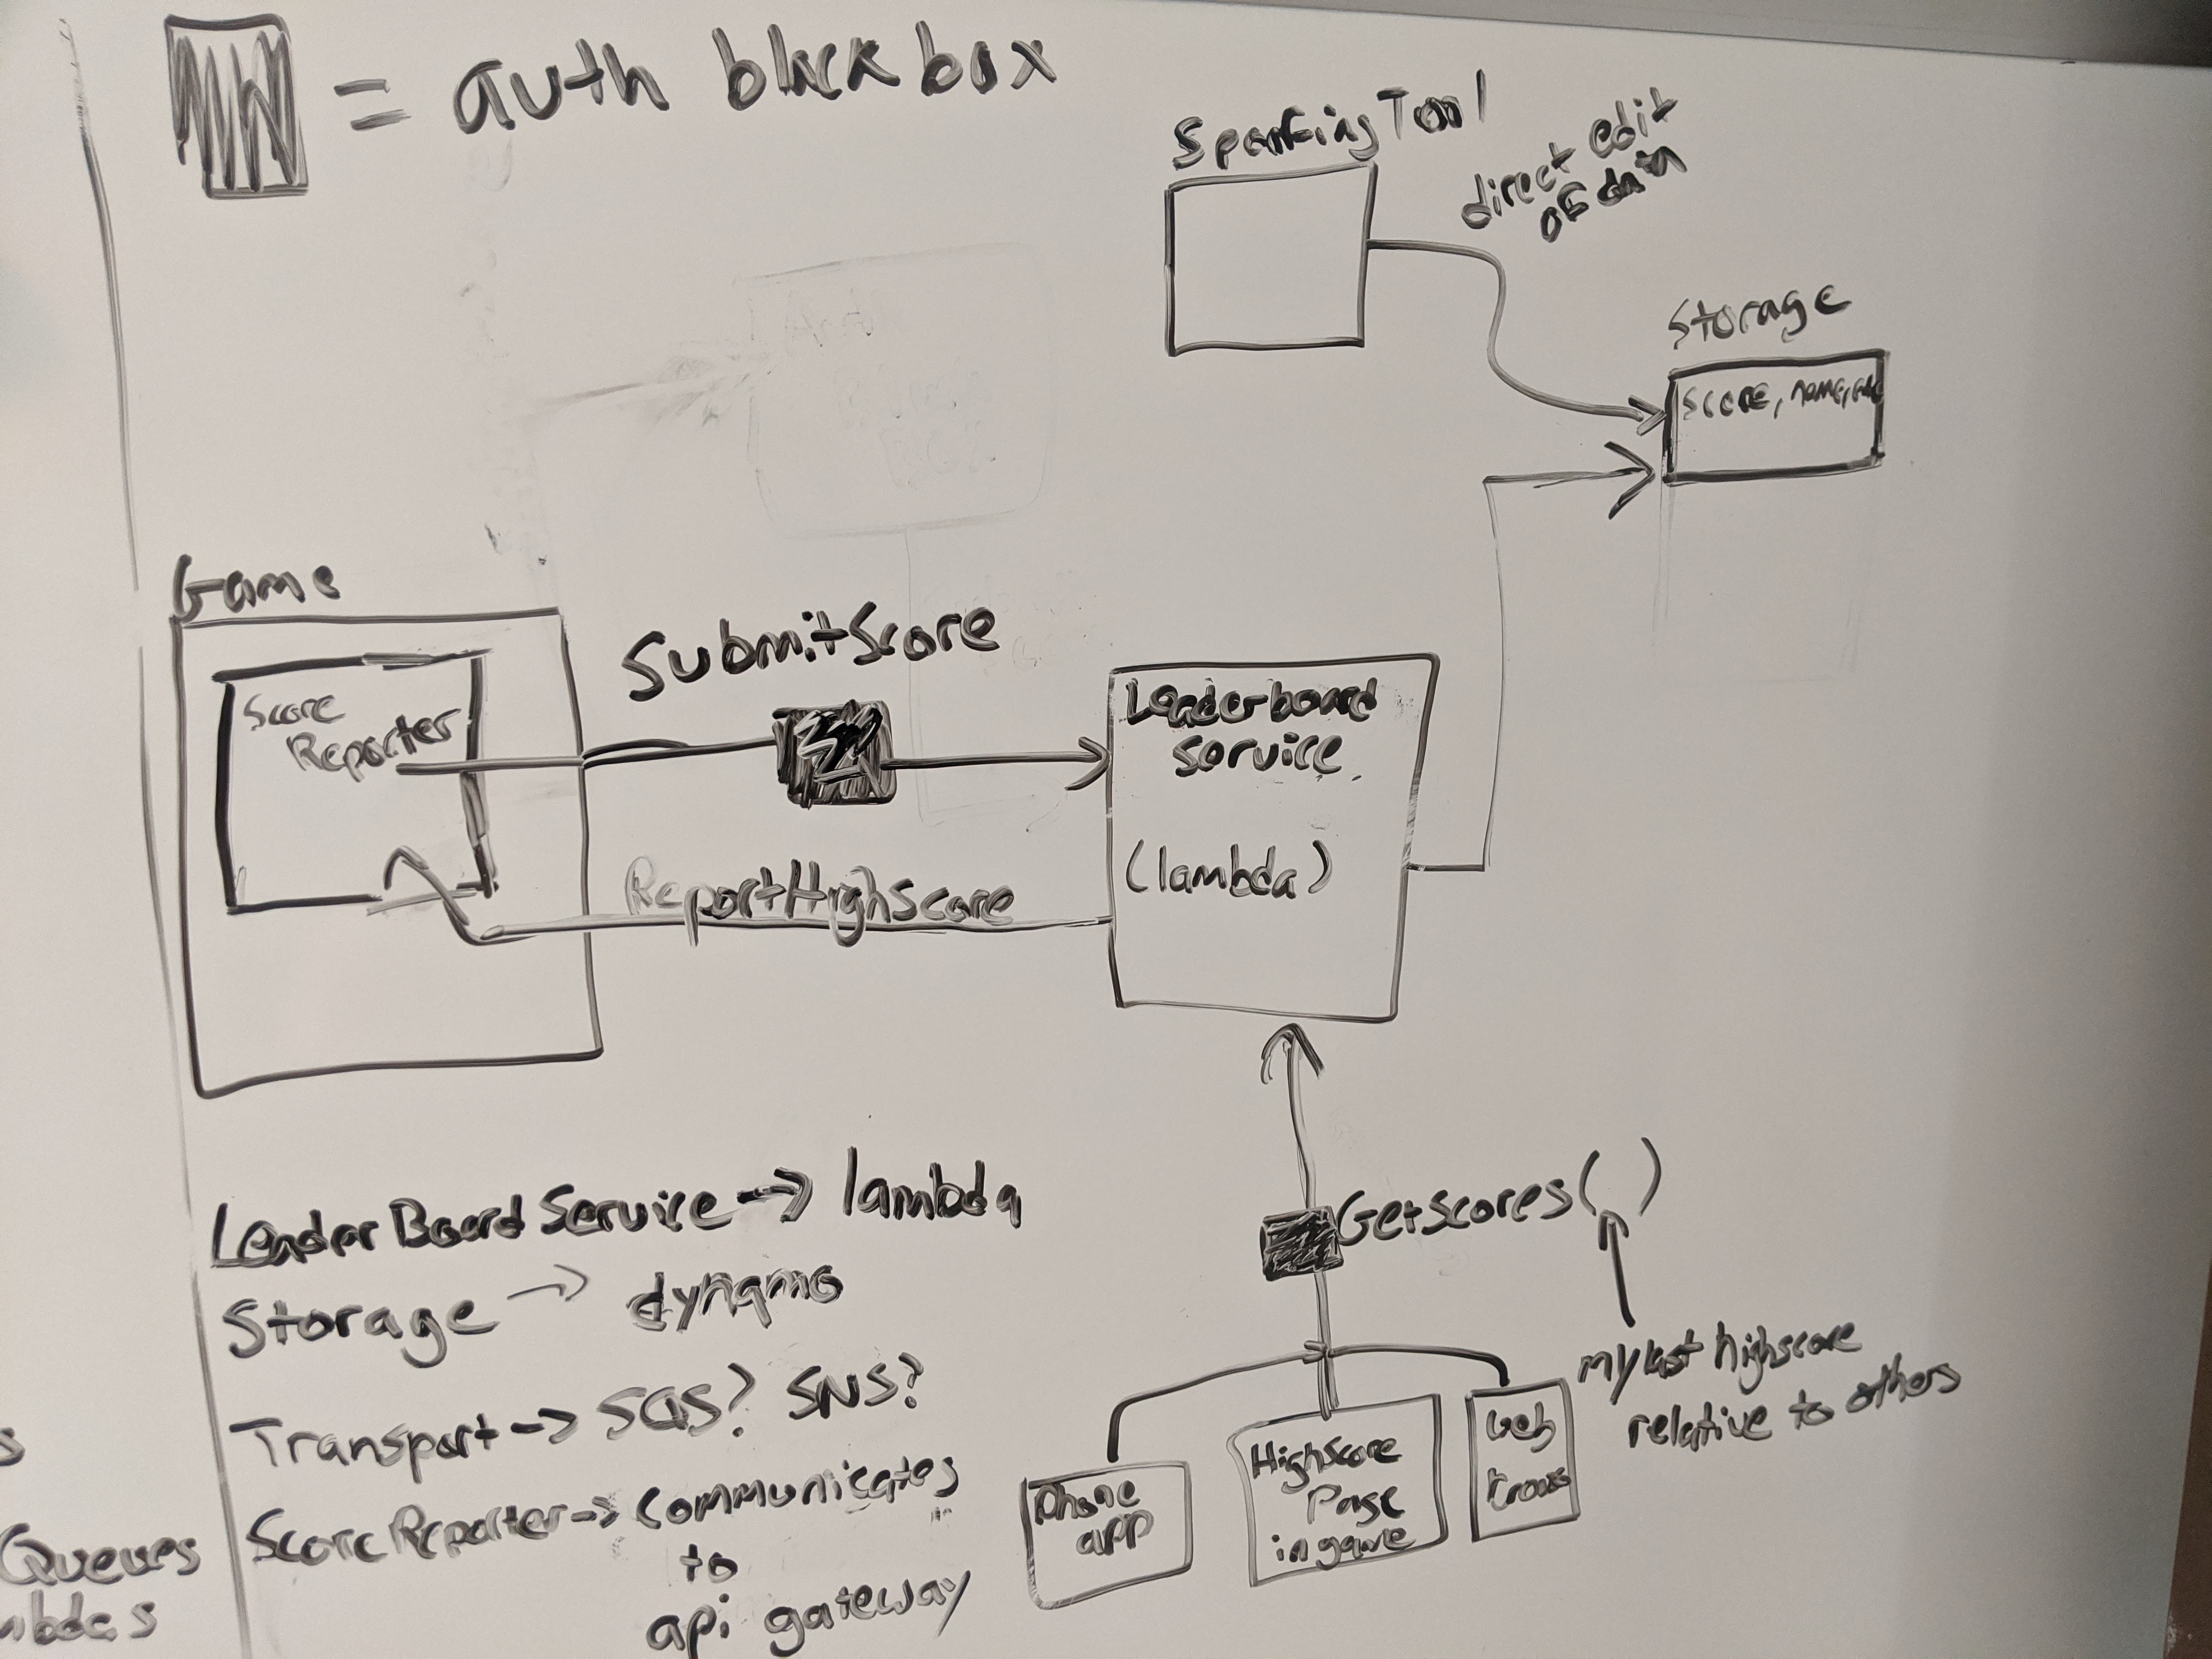 = auth black box
Spanking Tool
direct edit
of data
Storage
score, name,
Game
Score
Reporter
SubmitScore
ReportHighScore
Leaderboard
service
(lambda)
GetScores( )
my last highscore
relative to others
Phone
app
HighScore
Page
in game
Web
LeaderBoard Service -> lambda
Storage -> dynamo
Transport -> SQS? SNS?
ScoreReporter -> communicates
to
api gateway
s
Queues
mbdas